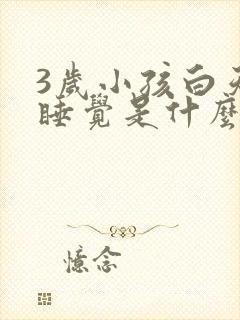 3歲小孩白天
睡覺是什麼
憶念